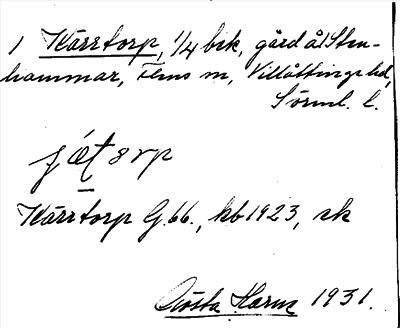 1 Kärrtorp, 1/4 bsk, gård å Sten-
hammar, Flens sn, Villåttinge hd,
Sörml. l.
Kärrtorp G.66., kb 1923, sk
Gösta Harns 1931.